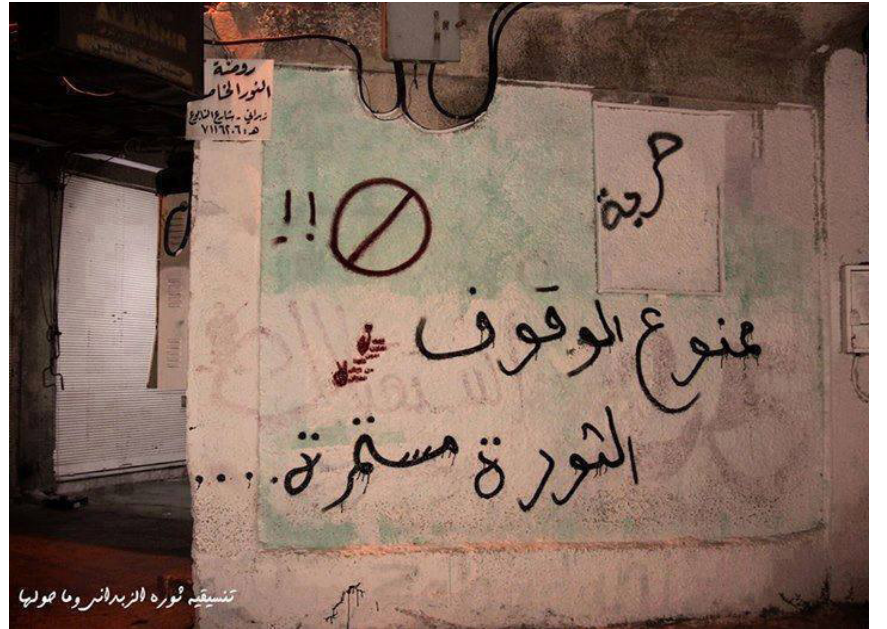 روضة
النور الخاصة
زبداني - شارع النابوع
هـ: ٧١١٦٢٠٦
حرية
!!
ممنوع الوقوف
الثورة مستمرة ....
تنسيقيه ثوره الزبداني وما حولها